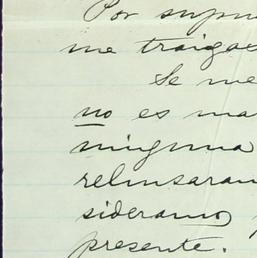 Por supu
me traiga
Se me
no es ma
ninguna
rehusaran
sideramos
presente.